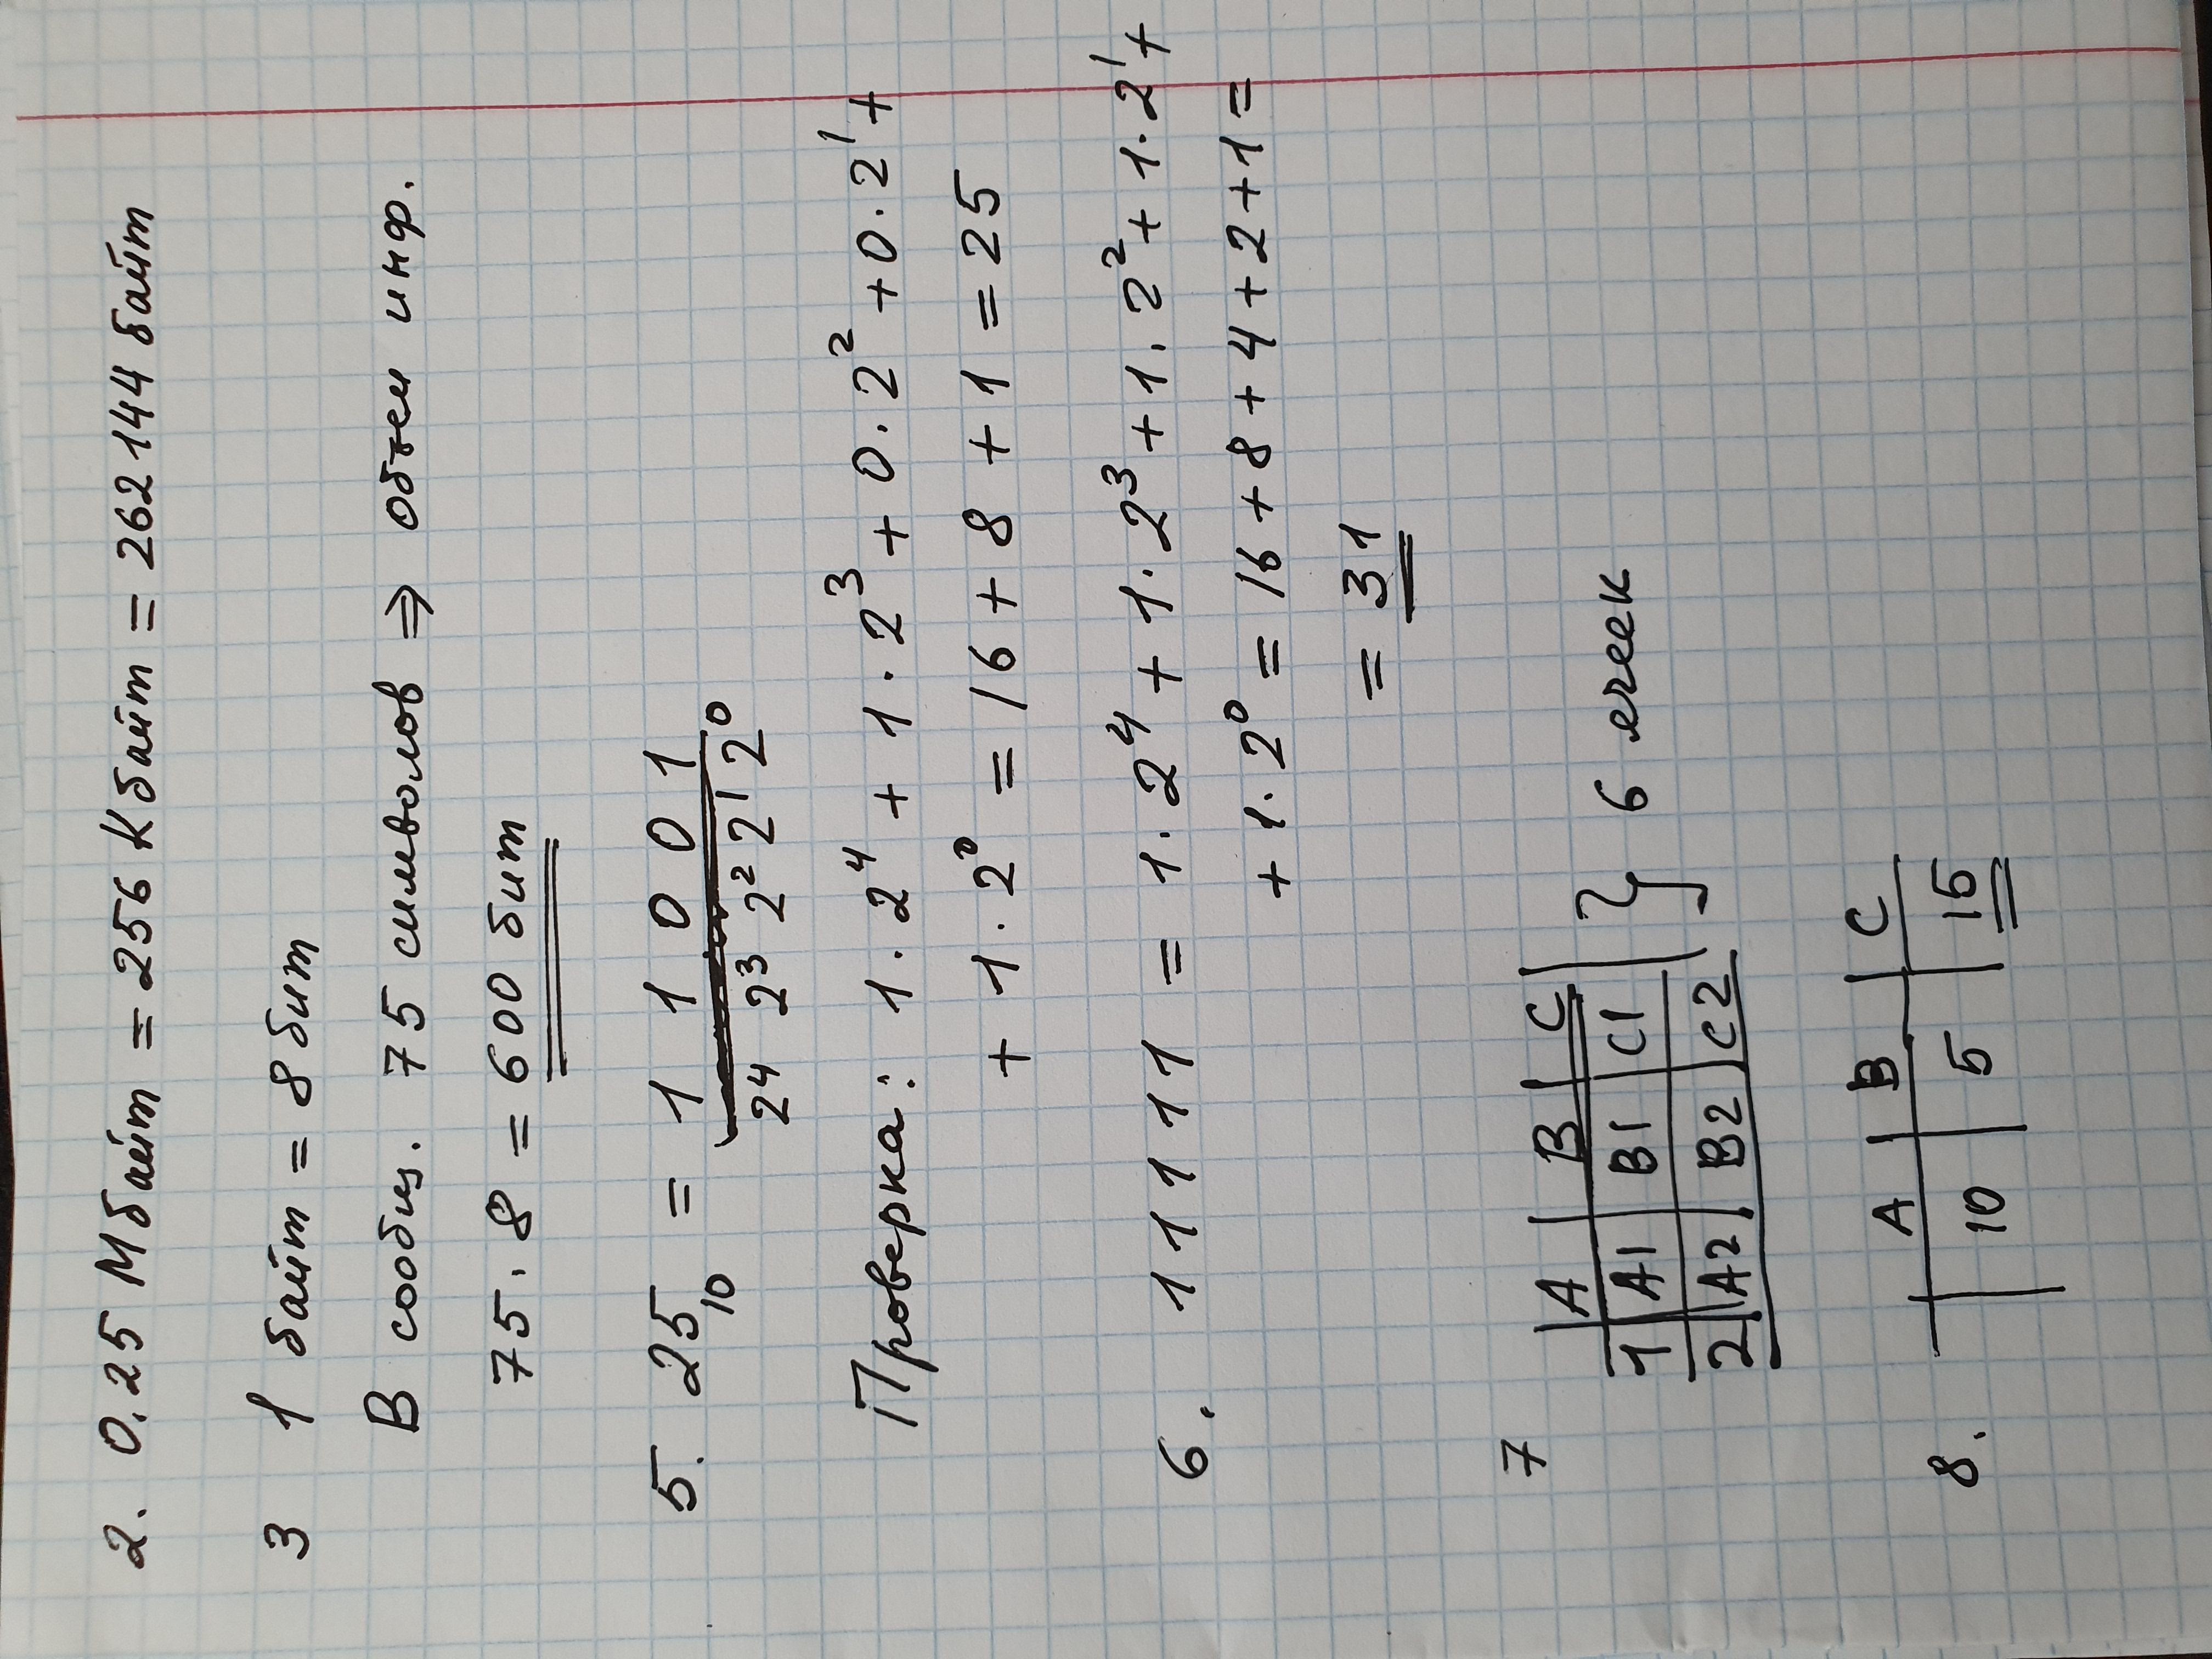 2. 0.25 Мбайт = 256 Кбайт = 262144 байт
3 1 байт = 8 бит
В сообщ. 75 символов ⇒ объем инф.
75 · 8 = 600 бит
5. 25₁₀ = 1 1 0 0 1
2⁴ 2³ 2² 2¹ 2⁰
Проверка: 1 · 2⁴ + 1 · 2³ + 0 · 2² + 0 · 2¹ +
+ 1 · 2⁰ = 16 + 8 + 1 = 25
6. 1 1 1 1 1 = 1 · 2⁴ + 1 · 2³ + 1 · 2² + 1 · 2¹ +
+ 1 · 2⁰ = 16 + 8 + 4 + 2 + 1 =
= 31
7 A | B | C
1 | A1 | B1 | C1 } 6 ячеек
2 | A2 | B2 | C2
8. A | B | C
10 | 5 | 15